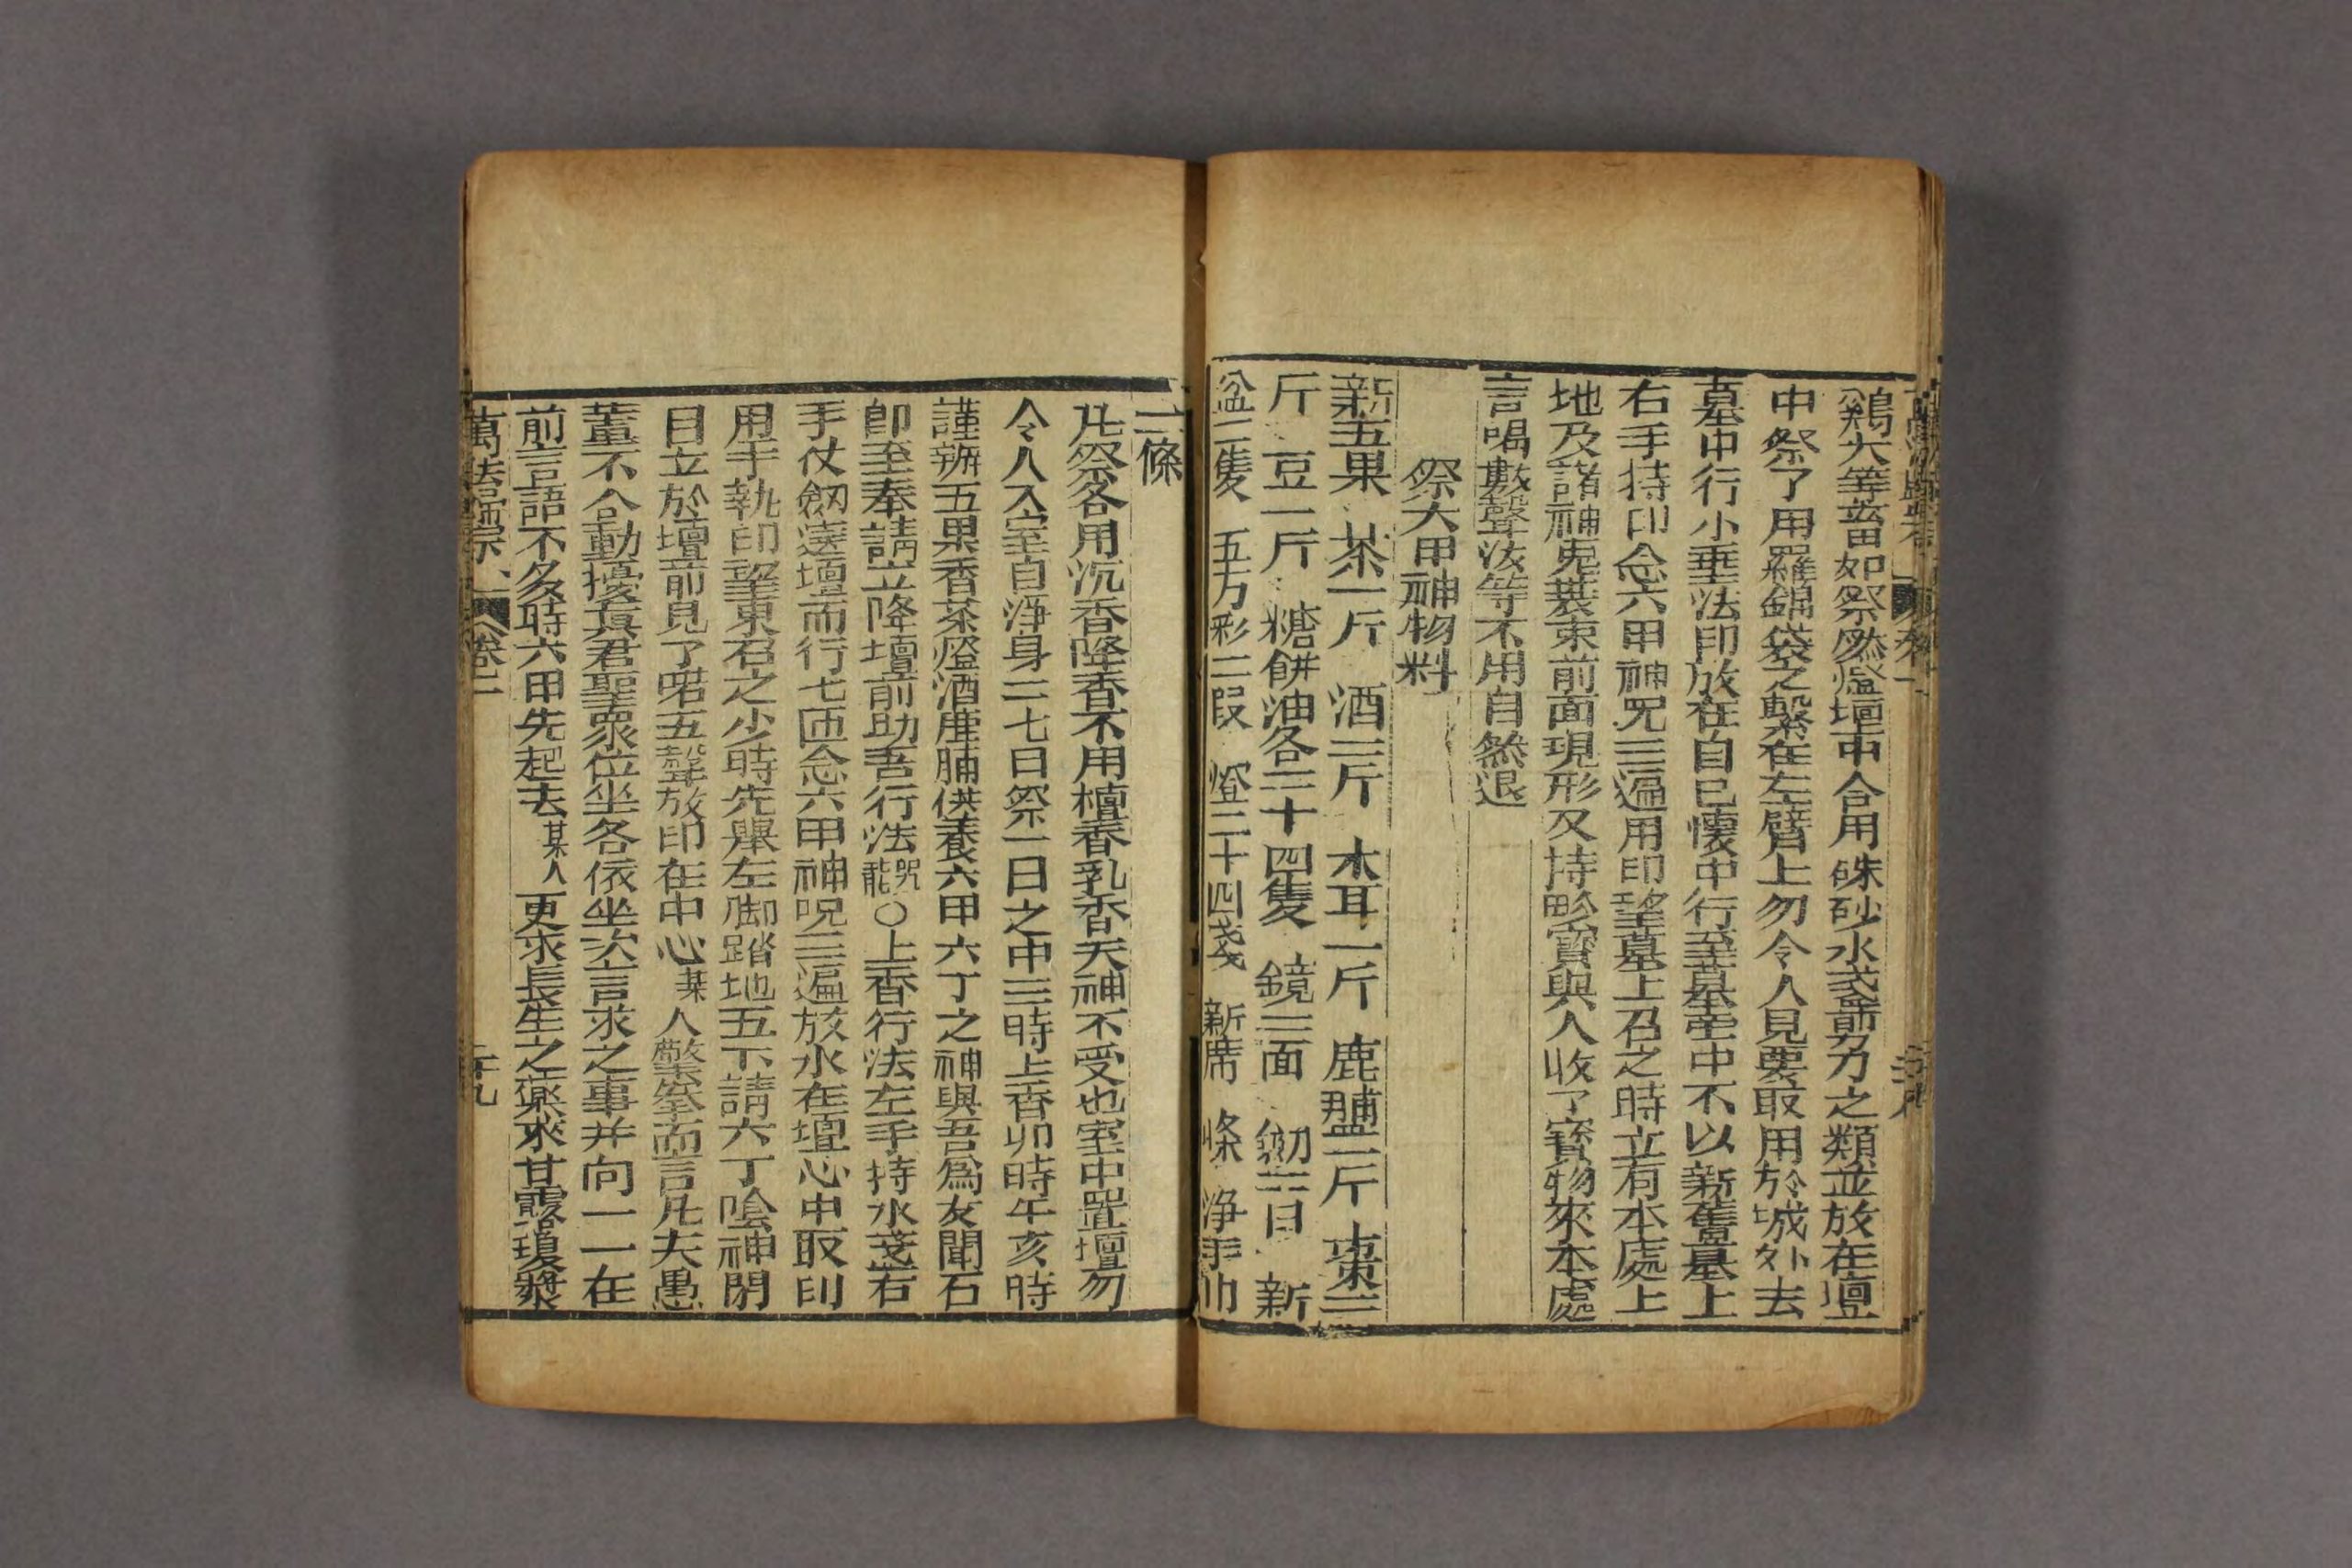 鷄犬等畜如祭燃燈壇中合用硃砂水盞剪刀之類並放在壇
中祭了用羅錦袋之繫在左臂上勿令人見要取用於城外去
墓中行小垂法印放在自己懷中行至墓堂中不以新舊墓上
右手持印念六甲神呪三遍用印望墓上召之時立有本處土
地及諸神鬼裝束前面現形及持珍寶與人收了寳物來本處
言喝數聲汝等不用自然退
祭六甲神物料
新五果 茶一斤 酒三斤 木耳一斤 鹿脯一斤 棗三
斤 豆一斤 糖餅油各三十四隻 鏡三面 劒三口 新
盆二隻 五方彩二段 燈二十四盞 新席 條 淨手巾
二條
凡祭各用沉香降香不用檀香乳香天神不受也室中置壇勿
令人入室自淨身二七日祭一日之中三時上香卯時午亥時
謹辦五果香茶燈酒鹿脯供養六甲六丁之神與吾爲友聞召
即至奉請立降壇前助吾行法呪龍〇上香行法左手持水盞右
手仗劒遶壇而行七匝念六甲神呪三遍放水在壇心中取印
用手執印望東召之少時先舉左脚踏地五下請六丁陰神閉
目立於壇前見了喏五聲放印在中心某人擎拳而言凡夫愚
蠢不合動擾真君聖衆位坐各依坐次言求之事并向一一在
前言語不多時六甲先起去某人更求長生之藥求甘露瓊漿
萬法歸宗 卷二 二十九